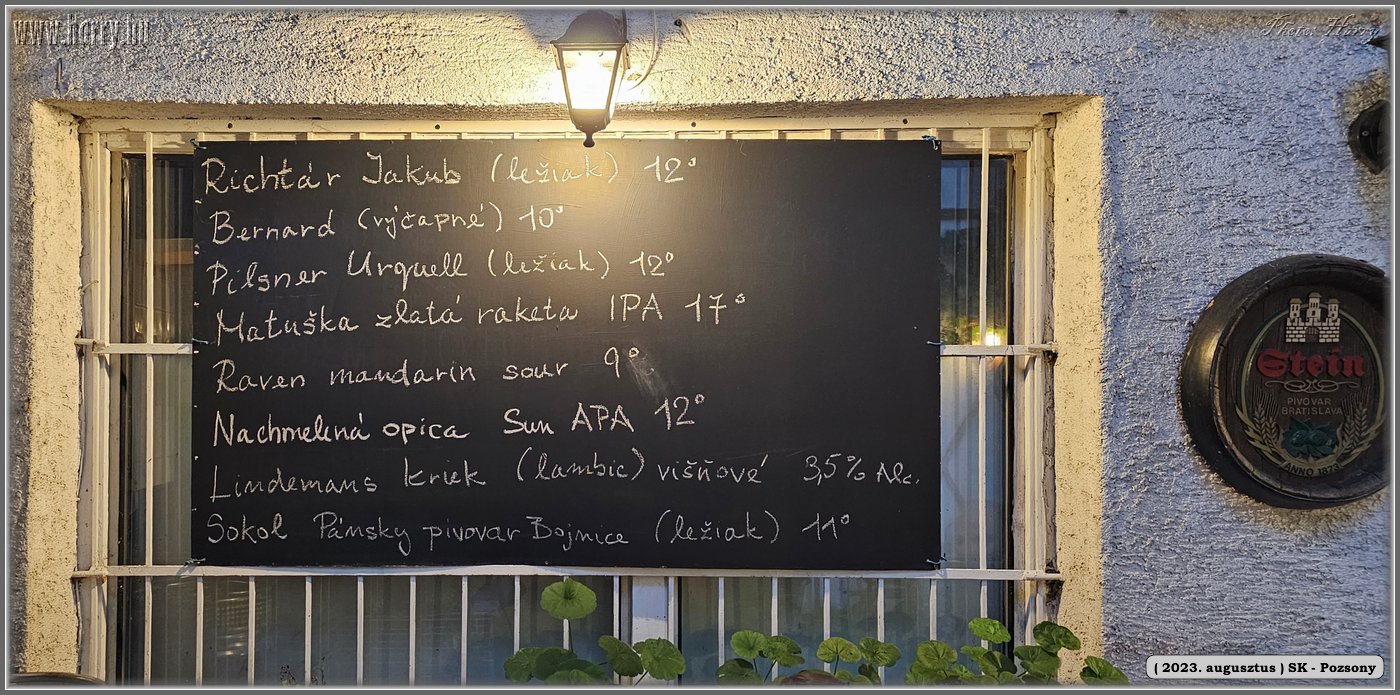 www.Harry.hu
Photo: Harry
Richtár Jakub (ležiak) 12°
Bernard (výčapné) 10°
Pilsner Urquell (ležiak) 12°
Matuška zlatá raketa IPA 17°
Raven mandarin sour 9°
Nachmelená opica Sun APA 12°
Lindemans kriek (lambic) višňové 3,5% Alc.
Sokol Pánsky pivovar Bojnice (ležiak) 11°
Stein
PIVOVAR
BRATISLAVA
ANNO 1873
( 2023. augusztus ) SK - Pozsony